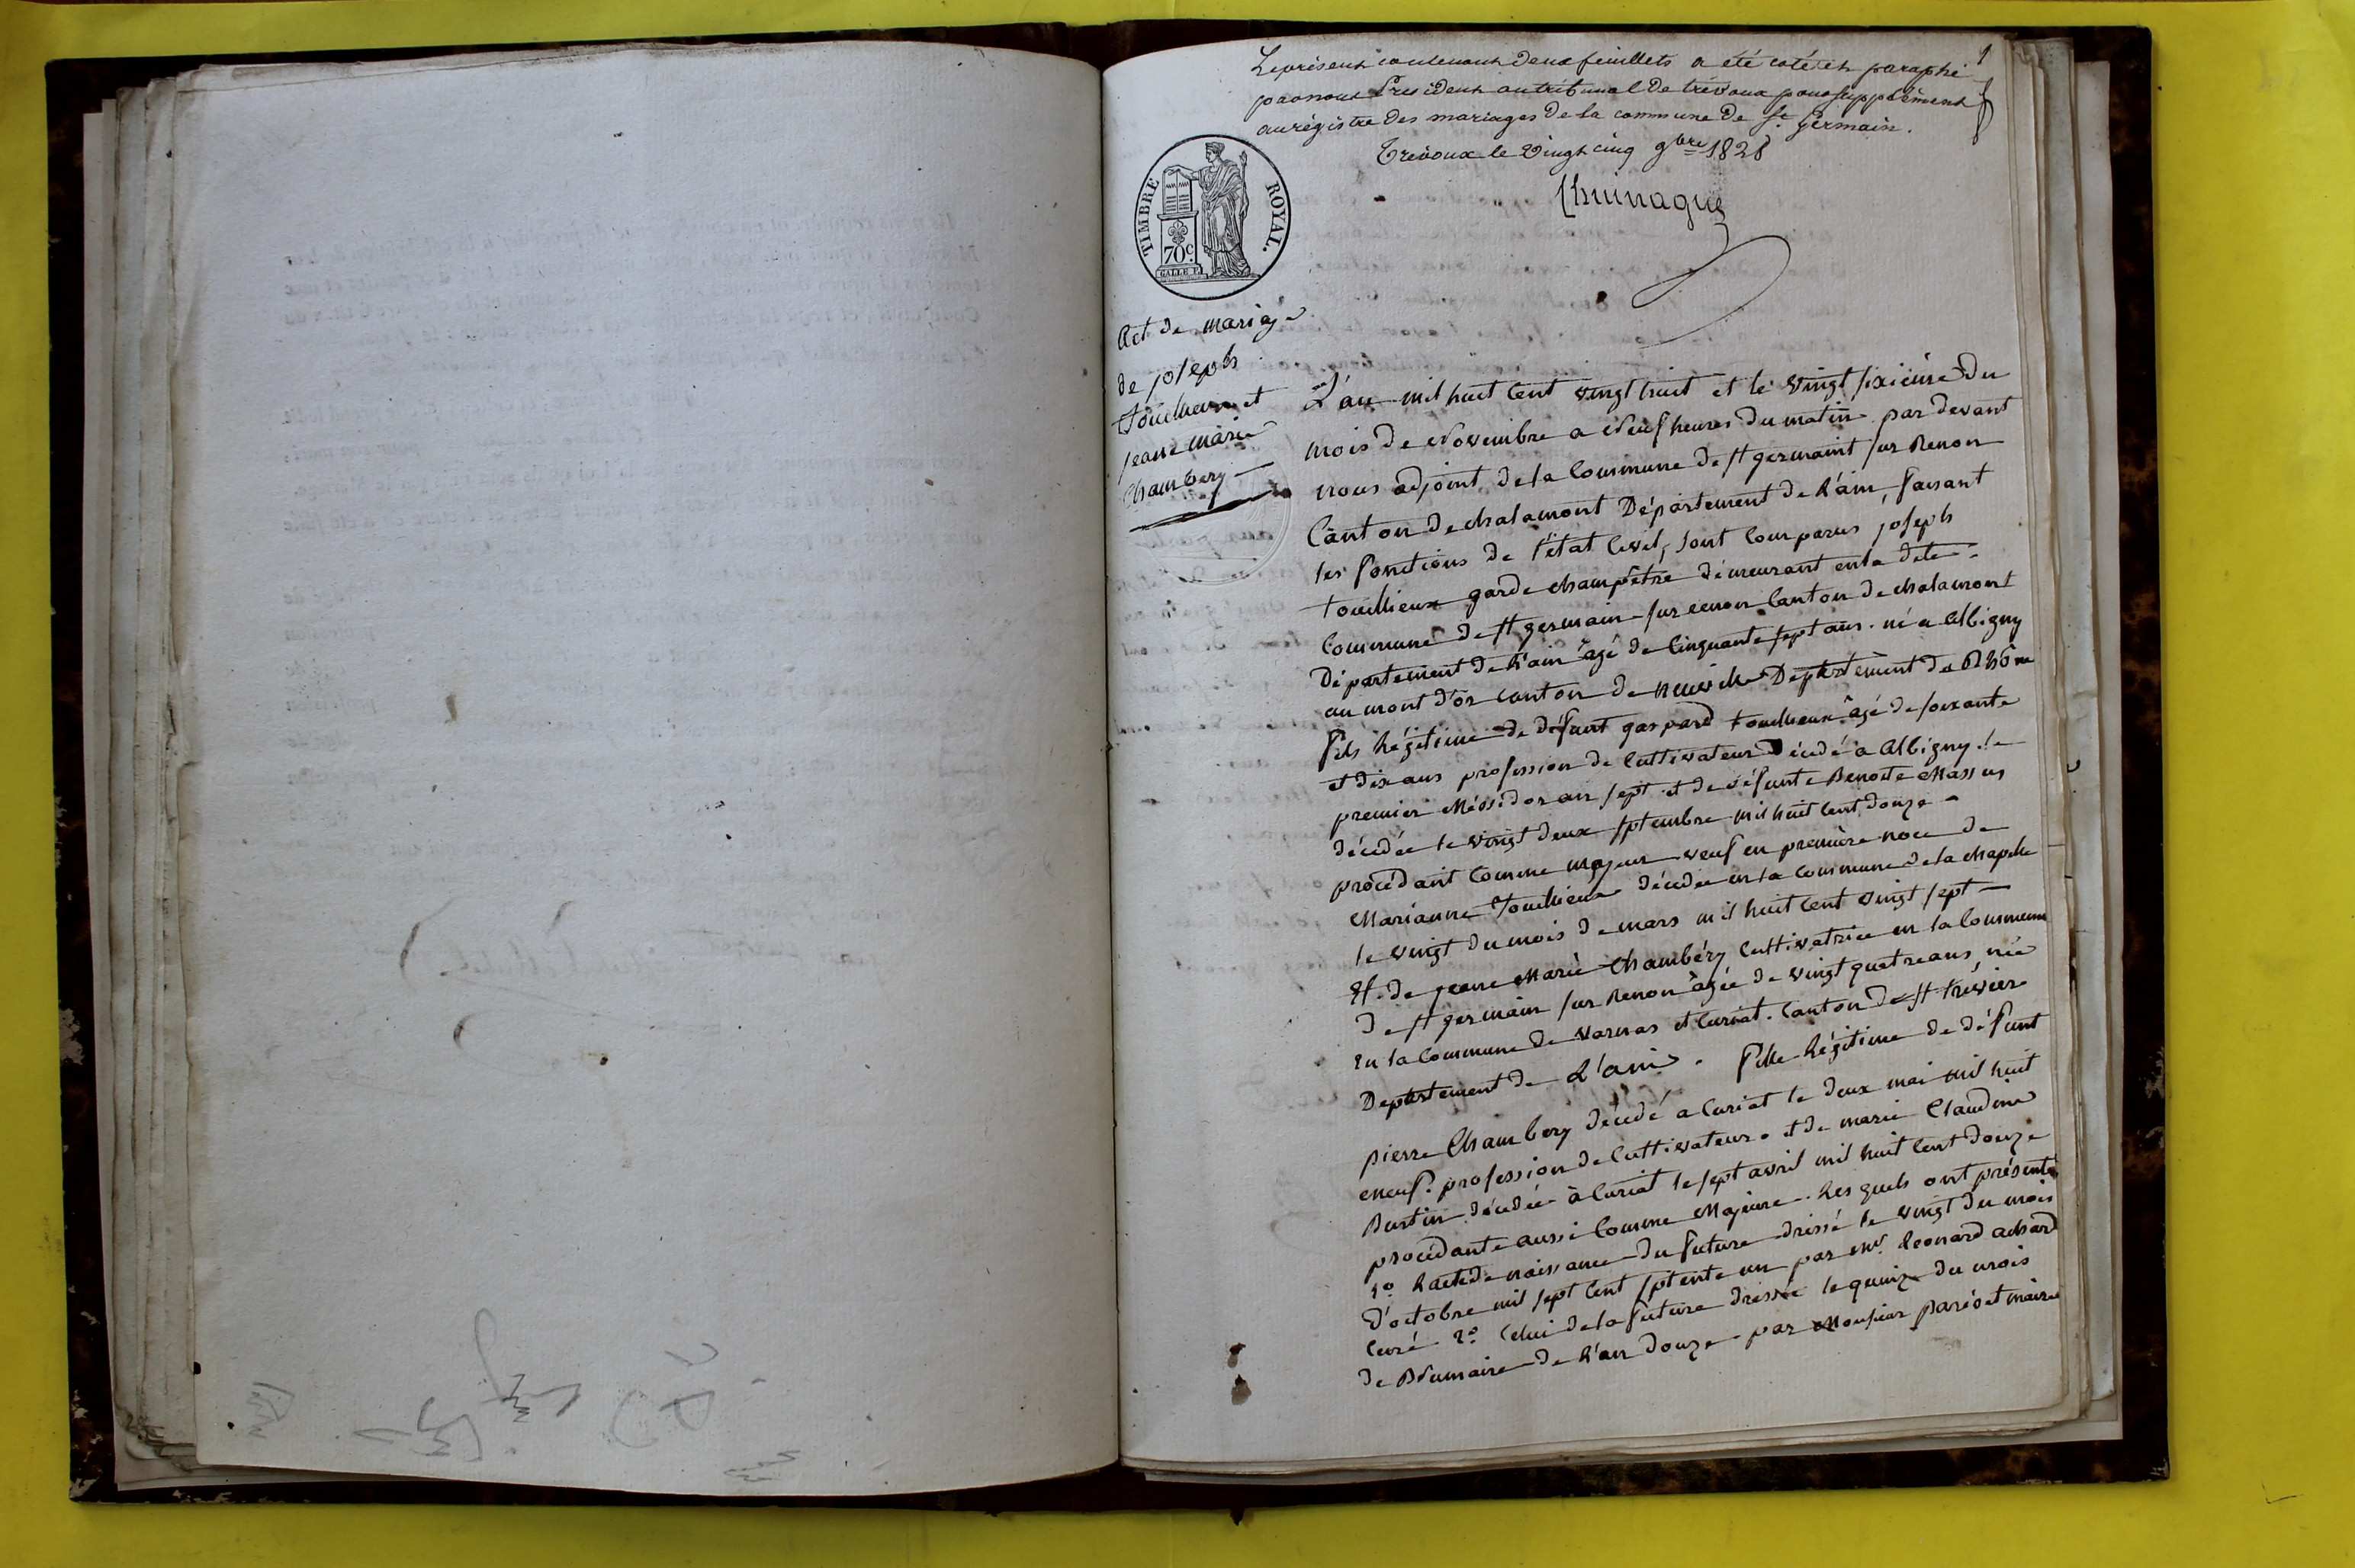 1
Le présent contenant deux feuillets a été coté et paraphé
par nous Président au tribunal de trévoux pour supplément
au régistre des mariages de la commune de St. Germain.
Trévoux le vingt cinq 9bre 1828
TIMBRE ROYAL.
70c.
Act de mariage
de joseph
touillieux et
jeane marie
Chambery
L'an mil huit cent vingt huit et le vingt sixième du
mois de Novembre a Neuf heures du matin par devant
nous adjoint de la Commune de st germaint sur Renon
Canton de chalamont Département de L'ain, faisant
les fonctions de l'état Civil, sont Comparus joseph
touillieux garde champêtre démeurant en la dite
Commune de st germain sur renon Canton de chalamont
Département de L'ain âgé de Cinquante sept ans. né a Albigny
au mont d'or canton de neuville Département du Rhône
fils Légitime de défunt gaspard touillieux âgé de soixante
et dix ans profession de Cultivateur Décédé a Albigny le
premier Méssidor an sept et de défunte Benoite Massus
décédée le vingt deux septembre mil huit Cent douze
procédant Comme majeur veuf en première noce de
Marianne Touillieux décédée en la Commune de la chapelle
le vingt du mois de mars mil huit Cent vingt sept
Et de jeane Marie Chambéry Cultivatrice en la Commune
de st germain sur Renon âgée de vingt quatre ans née
En la Commune de varnas et Curiat. Canton de st trivier
Département de L'ain. fille Légitime de défunt
pierre Chambery décédé a Curiat le deux mai mil huit
Cent neuf. profession de Cultivateur. et de marie Claudine
décédée à Curiat le sept avril mil huit Cent douze
procédante aussi Comme Majeure. Les quels ont présenté
1o. L'acte de naissance du future dréssé le vingt du mois
d'octobre mil sept Cent septente un par mr. Leonard achard
Curé 2o. Celui de la future dréssée le quinze du mois
de Brumaire de L'an douze par Monsieur maire